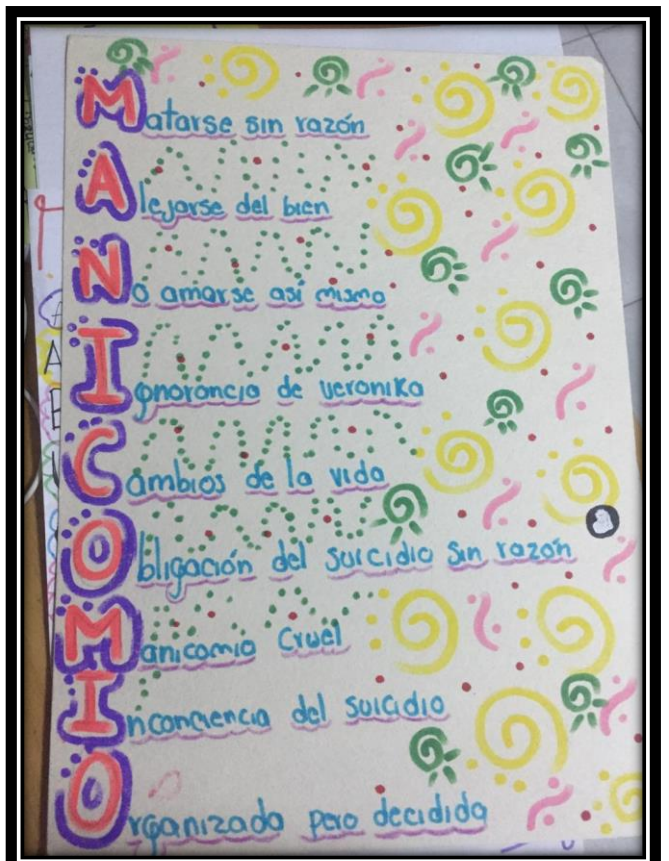 Matarse sin razón
Alejarse del bien
No amarse así mismo
Ignorancia de veronika
Cambios de la vida
Obligación del suicidio sin razón
Manicomio Cruel
Inconciencia del suicidio
Organizada pero decidida